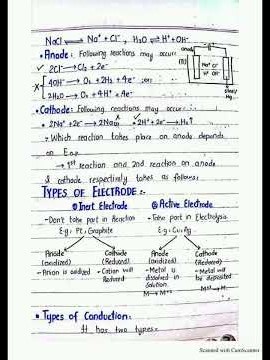 NaCl ⇌ Na⁺ + Cl⁻, H₂O ⇌ H⁺ + OH⁻
• Anode: Following reactions may occur:
✓ 2Cl⁻ → Cl₂ + 2e⁻
x 4OH⁻ → O₂ + 2H₂O + 4e⁻ or
2H₂O → O₂ + 4H⁺ + 4e⁻
anode
Na⁺ Cl⁻
H⁺ OH⁻
Hg
• Cathode: Following reactions may occur:
• 2Na⁺ + 2e⁻ → 2Na x 2H⁺ + 2e⁻ → H₂↑
→ Which reaction takes place on anode depends
on
→ 1ˢᵗ reaction and 2nd reaction on anode
& cathode respectively takes as follows:
TYPES OF ELECTRODE:-
① Inert Electrode ② Active Electrode
- Don't take part in Reaction - Take part in Electrolysis
E.g; Pt, Graphite E.g; Cu, Ag
Anode Cathode Anode Cathode
(oxidized) (Reduced) (oxidized) (Reduced)
- Anion is oxidized - Cation will - Metal is - Metal will
Reduced dissolved in be deposited
solution
M → M⁺ M⁺ → M
• Types of Conduction:
It has two types:
Scanned with CamScanner